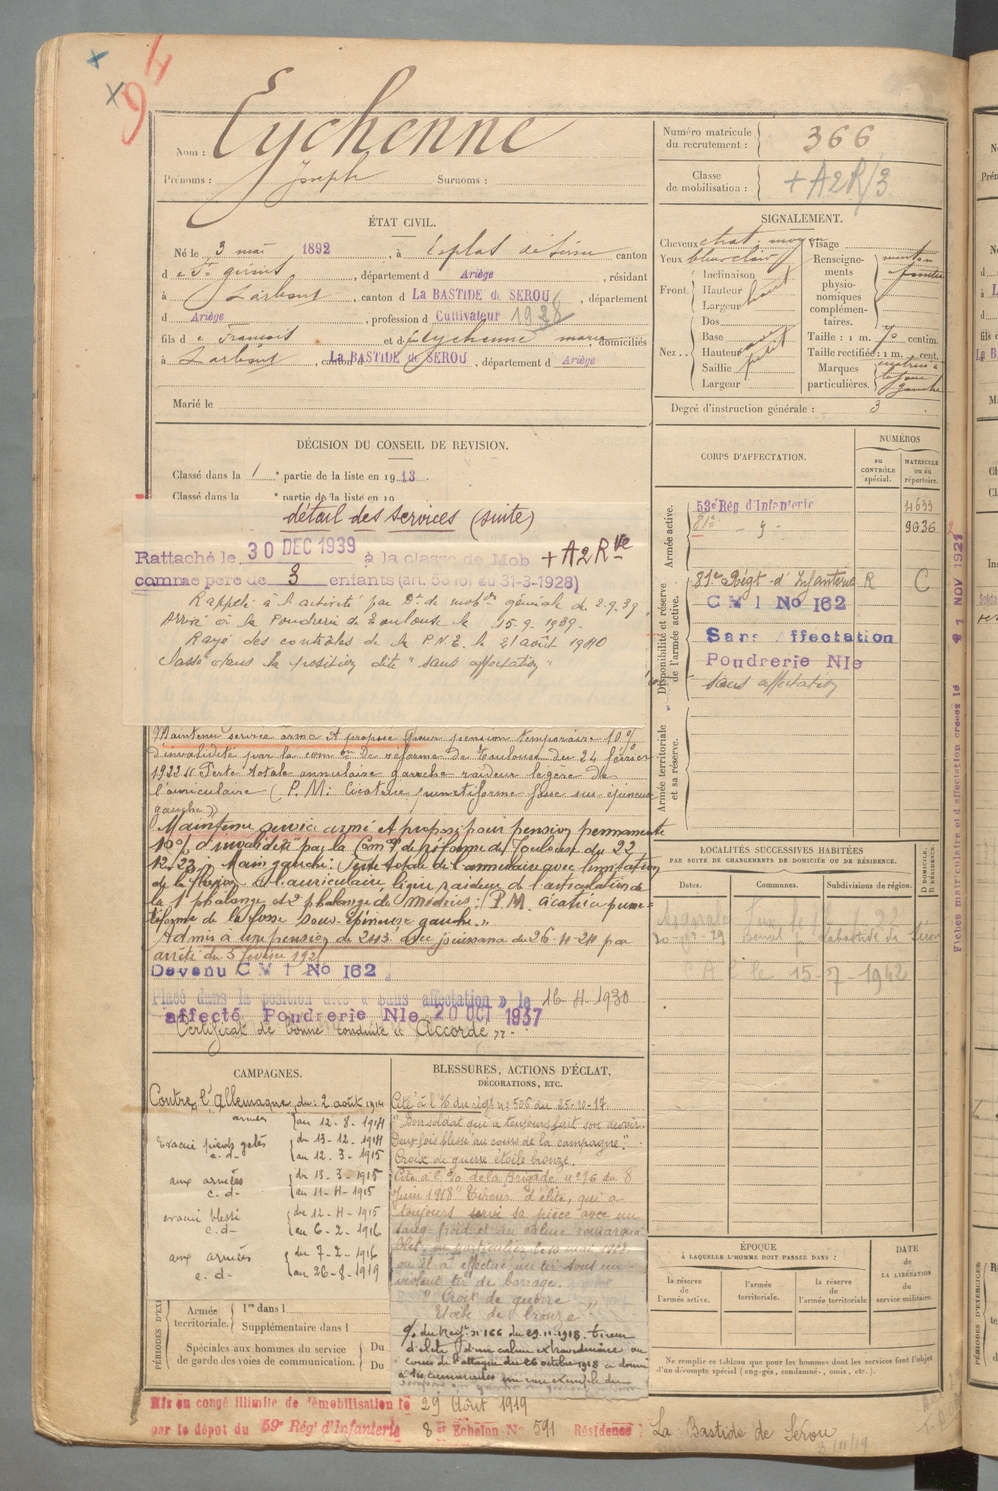 94
Nom : Eychenne
Prénoms : Joseph Surnoms :
Numéro matricule du recrutement : 366
Classe de mobilisation : +A2R/3
ÉTAT CIVIL.
Né le 3 mai 1892, à Esplas de Sérou canton
d e St girons, département d Ariège, résidant
à Larbont, canton d La BASTIDE de SEROU, département
d Ariège, profession d Cultivateur 1928
fils d e François et d Eychenne marie domiciliés
à Larbont, canton d La BASTIDE de SEROU, département d Ariège
Marié le
SIGNALEMENT.
Cheveux chat. moyen Visage
Yeux bleu clair
Front. Inclinaison
Hauteur
Largeur haut
Nez .. Dos
Base
Hauteur
Saillie petit
Largeur
Renseignements physionomiques complémentaires. menton
Taille : 1 m. 70 centim.
Taille rectifiée : 1 m. cent.
Marques particulières. cicatrice à la joue gauche
Degré d'instruction générale : 3
DÉCISION DU CONSEIL DE REVISION.
Classé dans la 1e partie de la liste en 1913.
Classé dans la e partie de la liste en 19
détail des services (suite)
Rattaché le 30 DEC 1939 à la classe de Mob +A2Rve
comme père de 3 enfants (art. 58 loi du 31-3-1928)
Rappelé à l'activité par Dt de mobon générale du 2-9-39
Arrivé à la Poudrerie de Toulouse le 15-9-1939.
Rayé des contrôles de la P.N.E. le 21 août 1940
classé dans la position dite "sans affectation"
Maintenu service armé et proposé pour pension temporaire 10%
d'invalidité par la comon de réforme de Toulouse du 24 février
1922 "Perte totale annulaire gauche raideur légère de
l'auriculaire (P.M: Cicatrice punctiforme fosse sus-épineuse
gauche")
Maintenu service armé et proposé pour pension permanente
10% d'invalidité par la Comon de réforme de Toulouse du 22
12.23 "Main gauche: Perte totale de l'annulaire avec limitation
de la flexion de l'auriculaire, légère raideur de l'articulation de
la 1e phalange et 2e phalange du médius: P.M. cicatrice punc-
tiforme de la fosse sous-Epineuse gauche".
Admis à une pension de 240f avec jouissance du 26-11-24 par
arrêté du 5 février 192
Devenu C M 1 No 162
Placé dans la position dite « Sans affectation » le 16-4-1930
affecté Poudrerie Nle 20 OCT 1937
Certificat de bonne conduite "Accordé".
CORPS D'AFFECTATION.
NUMÉROS
au CONTRÔLE spécial.
MATRICULE ou au répertoire.
Armée active.
53e Rég d'Infanterie 4633
81e - d° - 9636
Disponibilité et réserve de l'armée active.
81e Régt d'Infanterie R C
C M 1 No 162
Sans Affectation
Poudrerie Nle
sans affectation
Armée territoriale et sa réserve.
Fiches matriculaire et d'affectation créées le 11 NOV 1921
LOCALITÉS SUCCESSIVES HABITÉES
PAR SUITE DE CHANGEMENTS DE DOMICILE OU DE RÉSIDENCE.
Dates. Communes. Subdivisions de région.
D DOMICILE. R RÉSIDENCE.
20-12-29 Labastide de Sérou
le 15-7-1942
CAMPAGNES.
Contre l'Allemagne du: 2 août 1914
armées au 12-8-1914
Evacué pieds gelés du 13-12-1914
c.d- au 12-3-1915
aux armées du 13-3-1915
c.d- au 11-4-1915
évacué blessé du 12-4-1915
c.d- au 6-2-1916
aux armées du 7-2-1916
c.d- au 26-8-1919
BLESSURES, ACTIONS D'ÉCLAT,
DÉCORATIONS, ETC.
Cité à l'% du régt n° 506 du 25-10-17.
"Bon soldat qui a toujours fait son devoir.
Deux fois blessé au cours de la campagne".
Croix de guerre étoile bronze.
Cité à l'% de la Brigade n° 76 du 8
Juin 1918 "Tireur d'élite, qui a
toujours servi sa pièce avec un
sang-froid et un calme remarqua-
bles, en particulier le 10 mai 1918
où il a effectué un tir sous un
violent tir de barrage.
"Croix de guerre
Etoile de bronze".
% du Régt n° 166 du 29.11.1918. Tireur
d'élite d'un calme extraordinaire au
cours de l'attaque du 26 octobre 1918 a donné
à ses camarades un rare exemple de
PÉRIODES D'EXE
Armée territoriale. 1re dans l
Supplémentaire dans l
Spéciales aux hommes du service de garde des voies de communication. Du
Du
ÉPOQUE
À LAQUELLE L'HOMME DOIT PASSER DANS :
la réserve de l'armée active.
l'armée territoriale.
la réserve de l'armée territoriale
DATE DE LA LIBÉRATION du service militaire.
Ne remplir ce tableau que pour les hommes dont les services font l'objet
d'un décompte spécial (engagés, condamnés, omis, etc.).
Mis en congé illimité de démobilisation le 29 Août 1919
par le dépôt du 59e Rég' d'Infanterie 8e Echelon No 591 Résidence La Bastide de Sérou